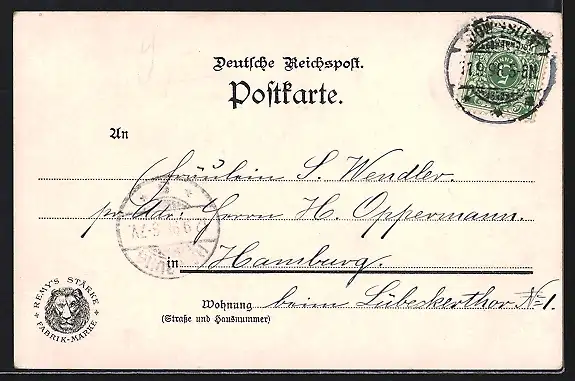 Deutsche Reichspost.
Postkarte.
An
Fräulein S. Wendler.
pr. Adr: Herrn H. Oppermann.
in Hamburg.
Wohnung beim Lübeckerthor No 1.
(Straße und Hausnummer)
REMY'S STÄRKE
FABRIK-MARKE